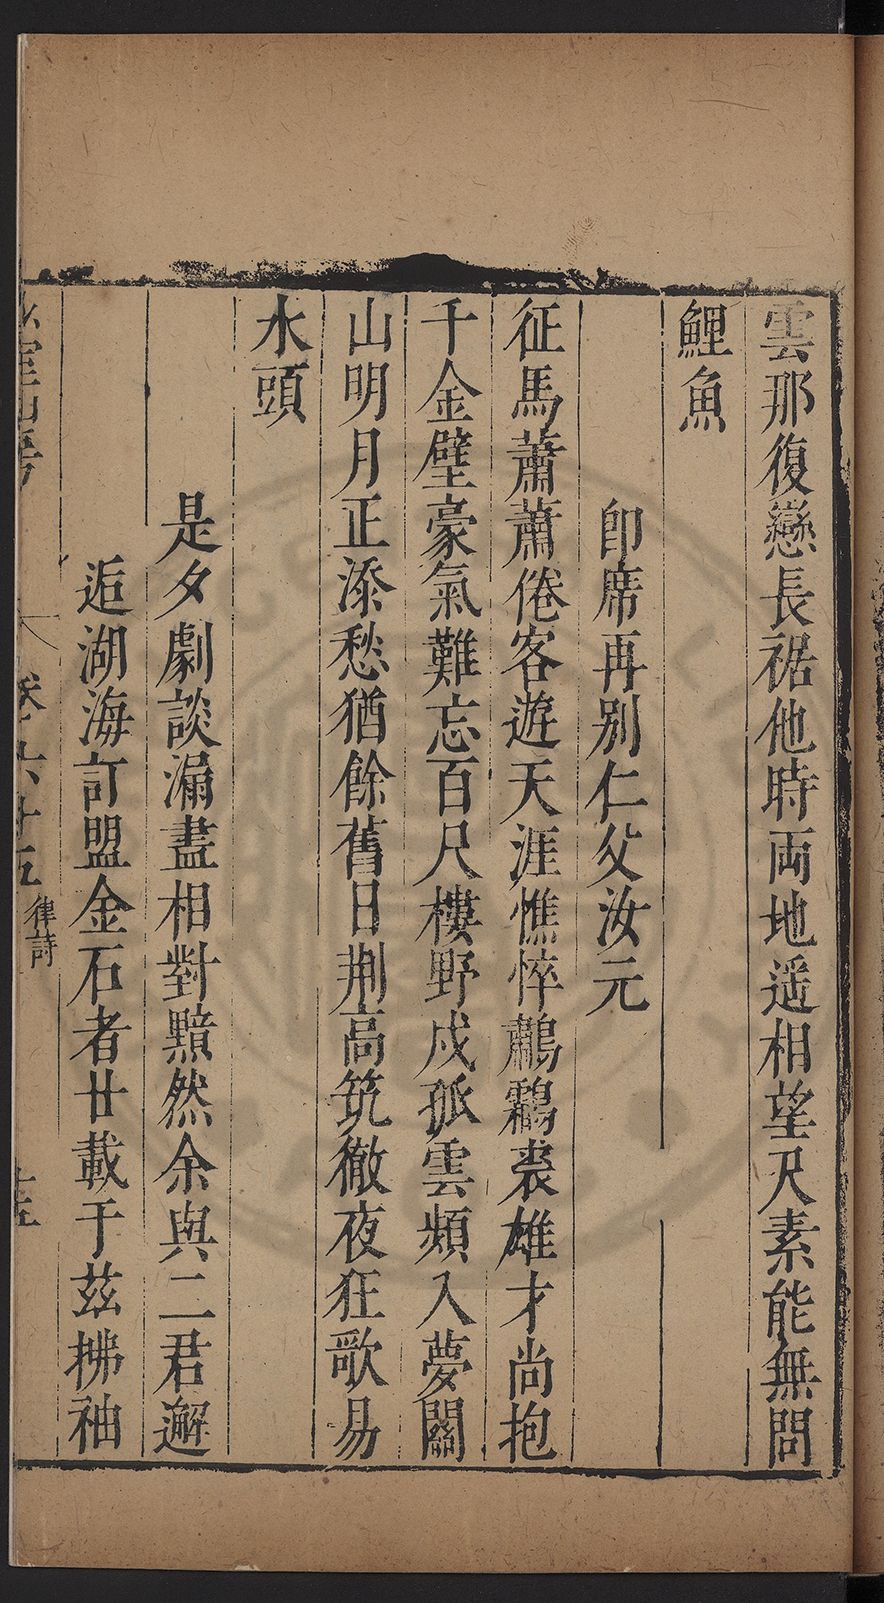 雲那復戀長裾他時両地遥相望尺素能無問
鯉魚
即席再別仁父汝元
征馬蕭蕭倦客遊天涯憔悴鷫鸘裘雄才尚抱
千金璧豪氣難忘百尺樓野戍孤雲頻入夢關
山明月正添愁猶餘舊日荆高筑徹夜狂歌易
水頭
是夕劇談漏盡相對黯然余與二君邂
逅湖海訂盟金石者廿載于茲拂袖
室山房
卷六十五
律詩